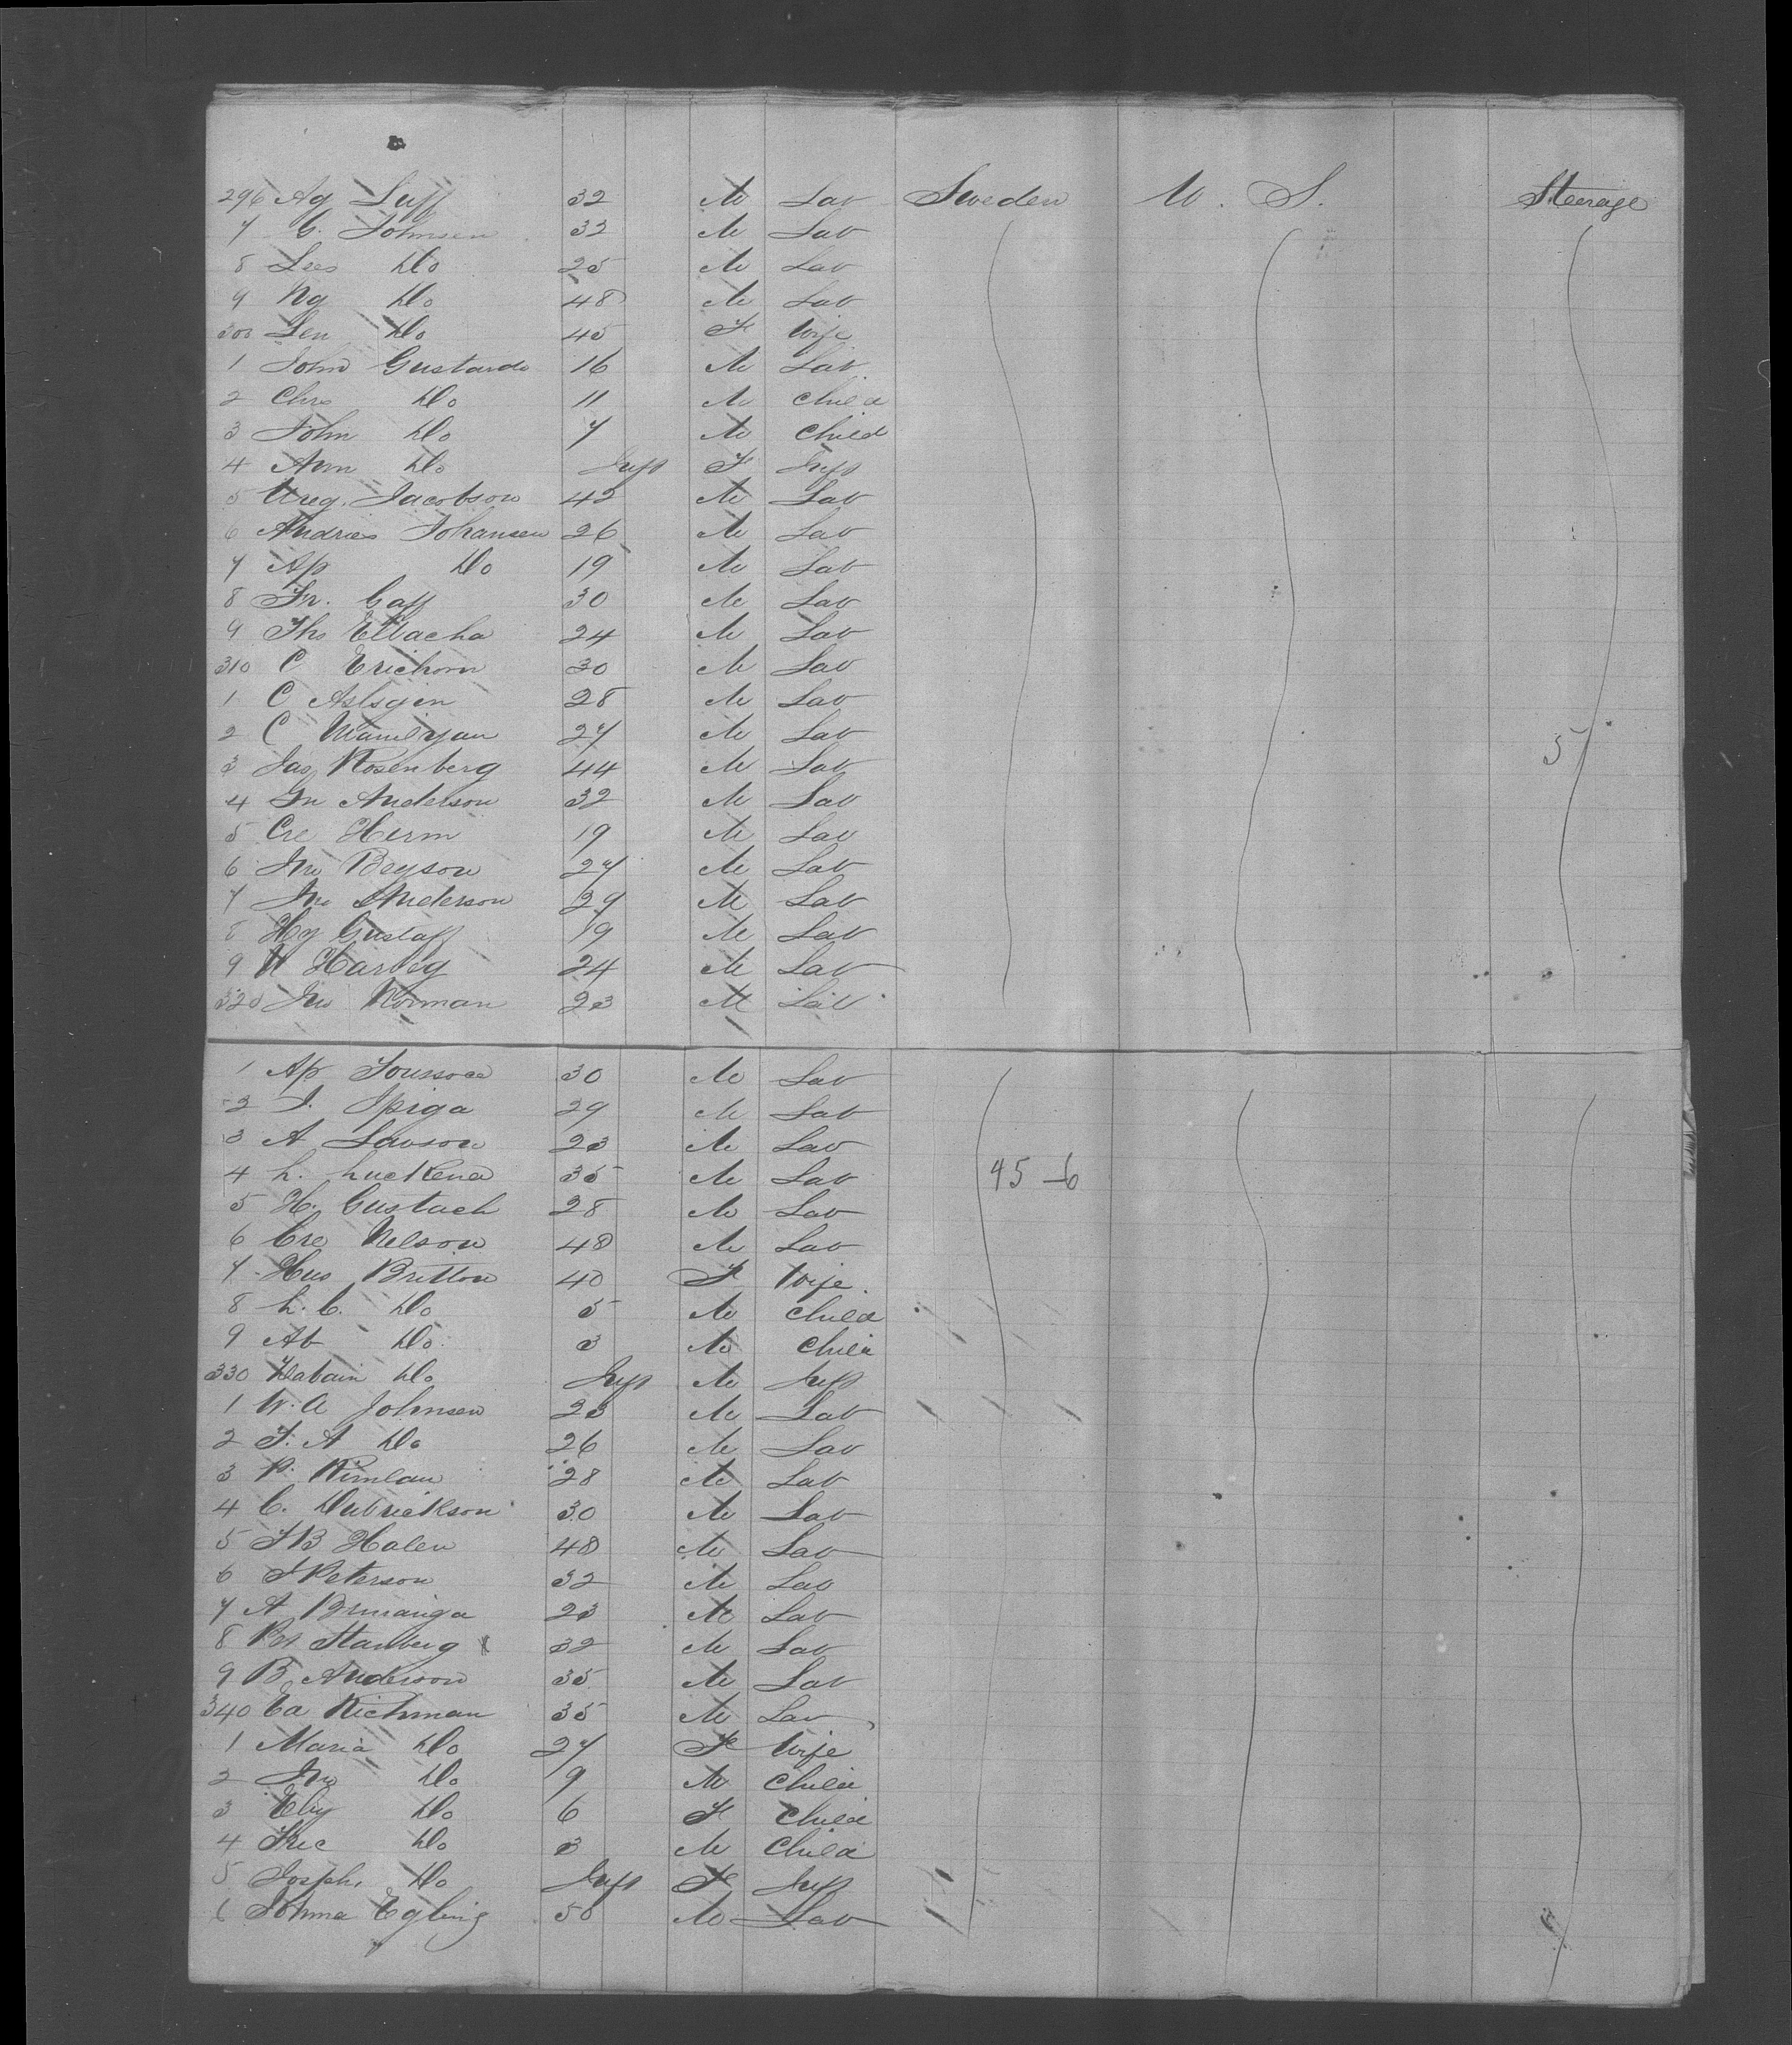 296 Ag Luff 32 M Lab Sweden U. S. Steerage
7 C. Johnsen 32 M Lab
8 Do 25 M Lab
9 Ng Do 48 M Lab
300 Len Do 45 F Wife
1 John Gustavdo 16 M Lab
2 Chrs Do 11 M Child
3 John Do 7 M Child
4 Ann Do Inft F Inft
5 Greg. Jacobson 42 M Lab
6 Andries Johansen 26 M Lab
7 Ap Do 19 M Lab
8 Fr. Caff 30 M Lab
9 Ths Elbacha 24 M Lab
310 C Erichorn 30 M Lab
1 C Aslsgen 28 M Lab
2 C 27 M Lab
3 Jas Rosenberg 44 M Lab 5
4 Jn Anderson 32 M Lab
5 Cre Herm 19 M Lab
6 Jno Beyson 27 M Lab
7 Jno Anderson 29 M Lab
8 Hy Gustaff 19 M Lab
9 W Harvey 24 M Lab
320 Jno Norman 23 M Lab
1 Ap 30 M Lab
2 J. Spiga 29 M Lab
3 A Lawson 23 M Lab
4 L. Luckena 35 M Lab 45 – 6
5 H. Gustach 28 M Lab
6 Cre Nelson 48 M Lab
7 Hus Britton 40 F Wife
8 L. C. Do 5 M Child
9 Ab Do 3 M Child
330 Do Inft M Inft
1 W. A Johnsen 23 M Lab
2 J. A Do 26 M Lab
3 P. Rimlau 28 M Lab
4 C. Dubrickson 30 M Lab
5 J B Halen 48 M Lab
6 J Peterson 32 M Lab
7 A 23 M Lab
8 Pet Stanberg 32 M Lab
9 B Anderson 35 M Lab
340 Ca Richman 35 M Lab
1 Maria Do 27 F Wife
2 Jno Do 9 M Child
3 Eliy Do 6 F Child
4 Fric Do 3 M Child
5 Joseph. Do Inft F Inft
6 Johna Egling 50 M Lab